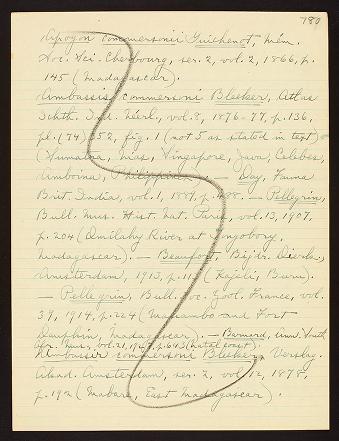 780
Apogon commersonii Guichenot, Mém.
Soc. Sci. Cherbourg, ser. 2, vol. 2, 1866, p.
145 (Madagascar).
Ambassis commersoni Bleeker, Atlas
Ichth. Ind. Néerl., vol. 8, 1876-77, p. 136,
pl. (74) 352, fig. 1 (not 5 as stated in text)
(Sumatra, Nias, Singapore, Java, Celebes,
Amboina, Philippines). — Day, Fauna
Brit. India, vol. 1, 1889, p. 488. — Pellegrin,
Bull. Mus. Hist. Nat. Paris, vol. 13, 1907,
p. 204 (Amilahy River at Tongobory,
Madagascar). — Beaufort, Bijdr. Dierk.,
Amsterdam, 1913, p. 113 (Kajeli, Buru).
— Pellegrin, Bull. Soc. Zool. France, vol.
39, 1914, p. 224 (Maevambo and Fort
Dauphin, Madagascar). — Barnard, Ann. South
Afr. Mus., vol. 21, 1927, p. 613 (Natal coast).
Ambassis commersoni Bleeker, Verslag.
Akad. Amsterdam, ser. 2, vol. 12, 1878,
p. 192 (East Madagascar).